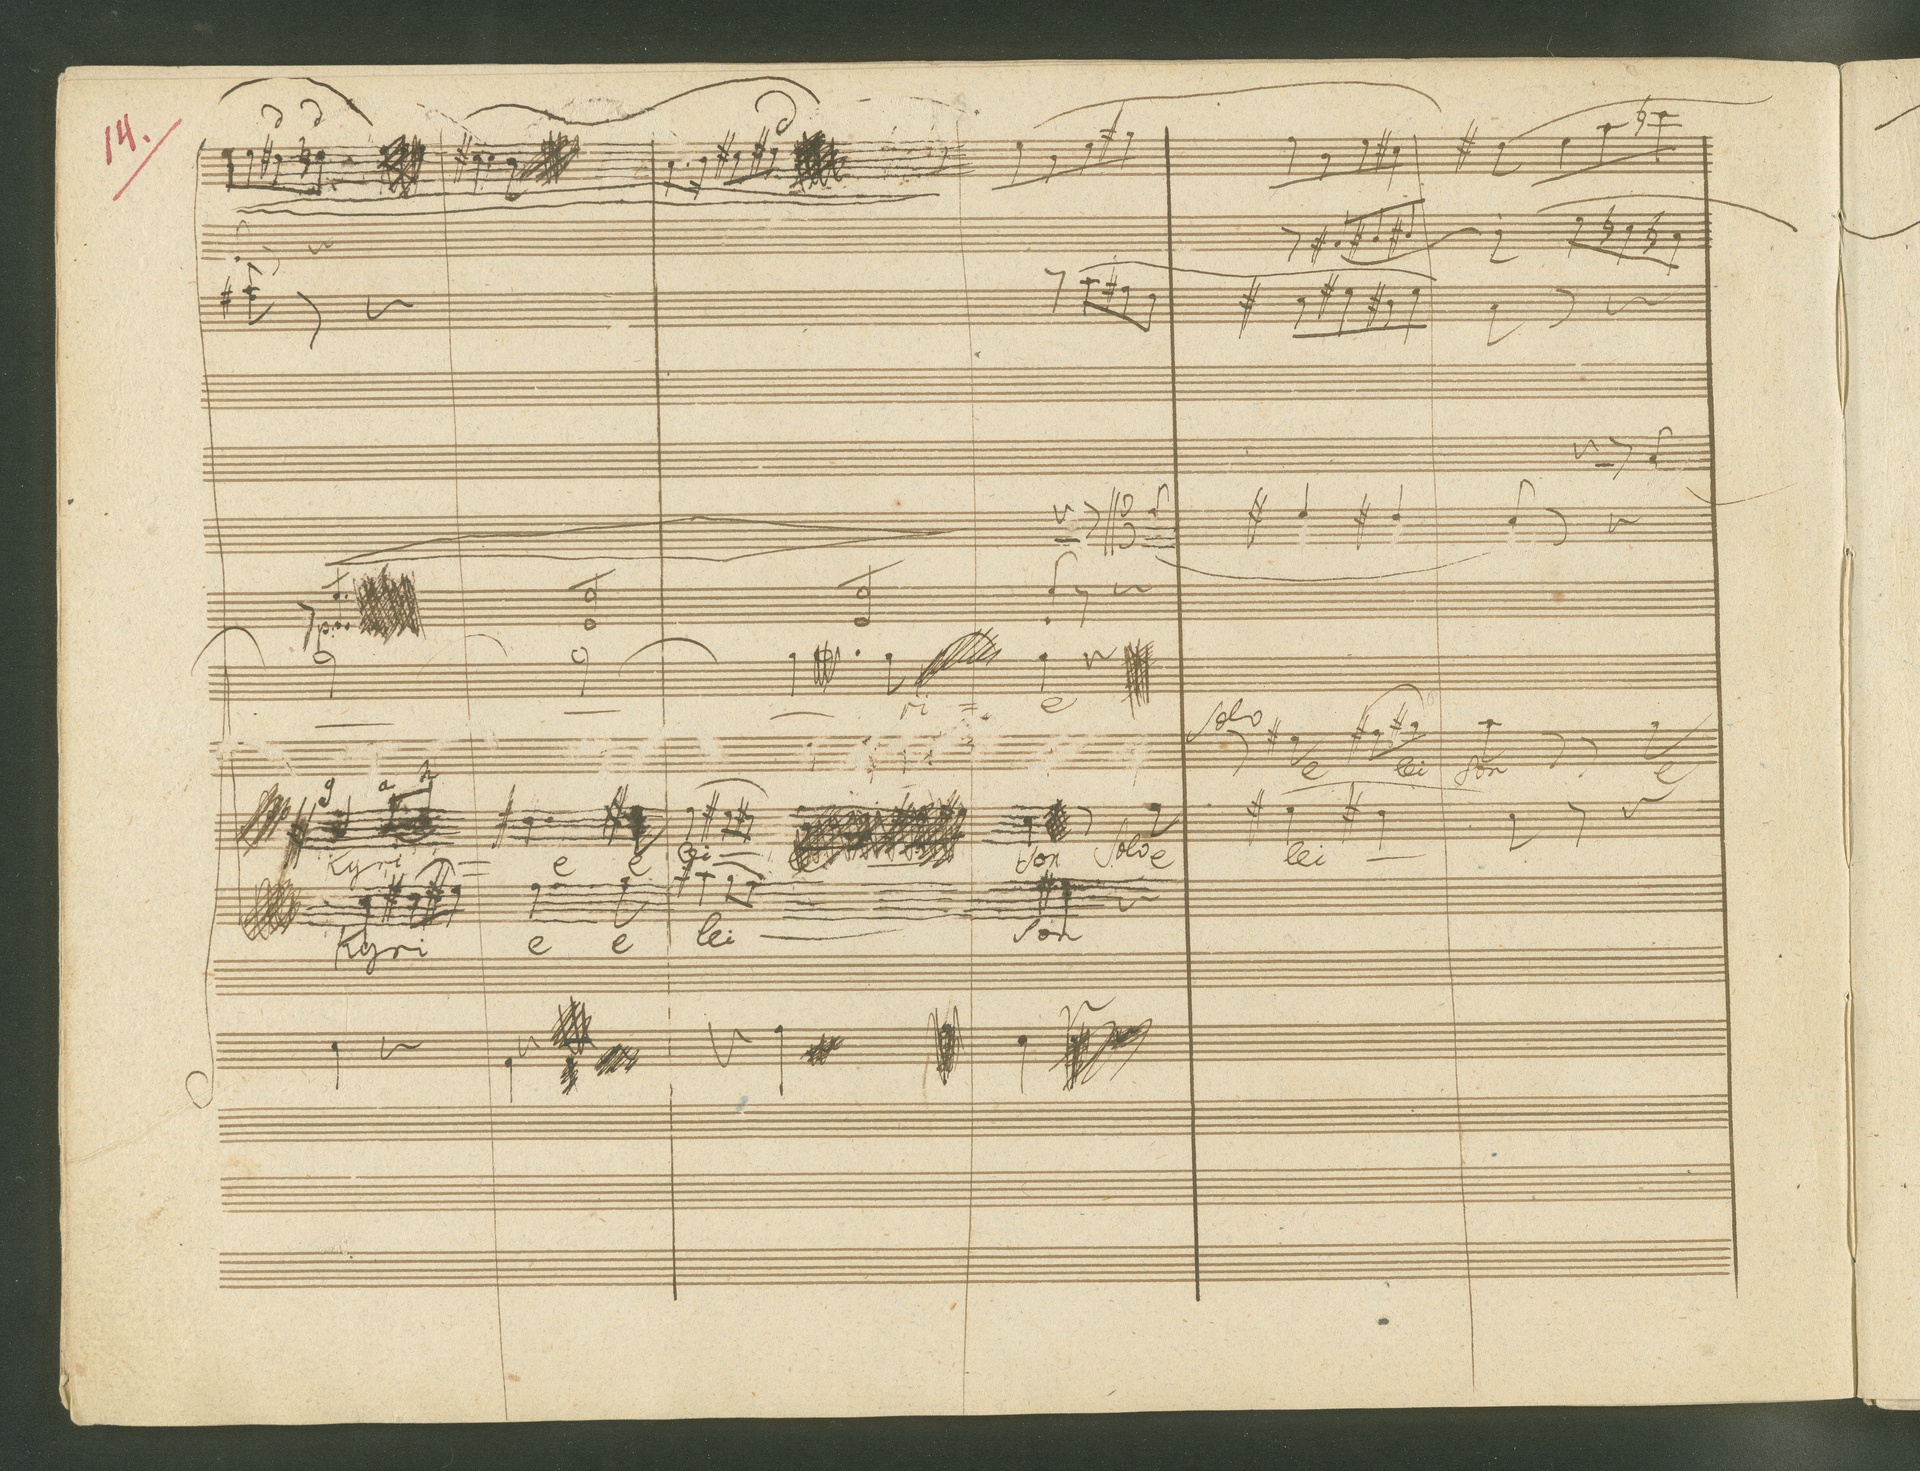 14.
p
ri = e
Solo
e lei son e
g a h
Kyri = e e lei — son Solo e lei —
Kyri e e lei — son